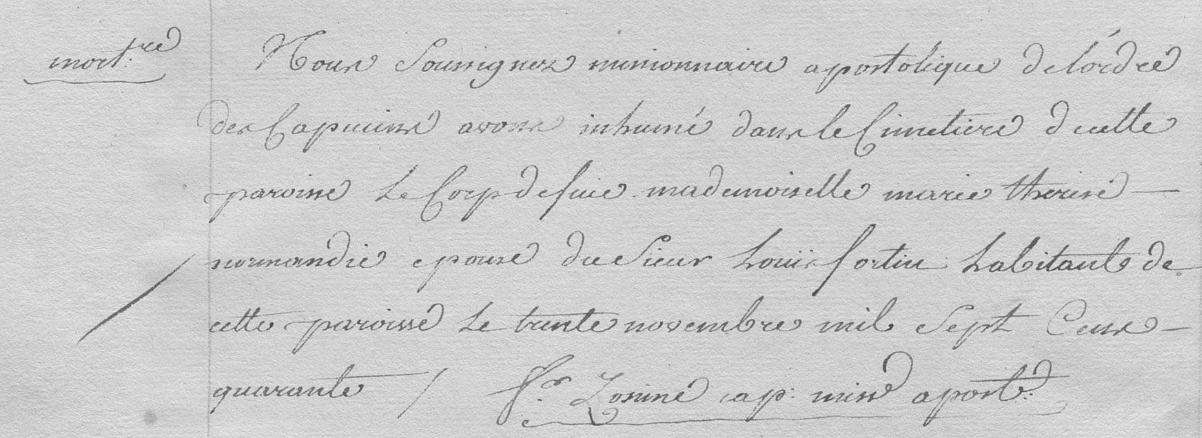 mort.re
Nous Soussignez missionnaire apostolique de l'ordre
des Capucins avons inhumé dans le Cimetiere d cette
paroisse Le Corp de feüe mademoiselle marie therese
normandie epouse du Sieur Loüis fortin habitant de
cette paroisse Le trente novembre mil Sept Cens
quarante / fr. Zosime cap: miss apost: